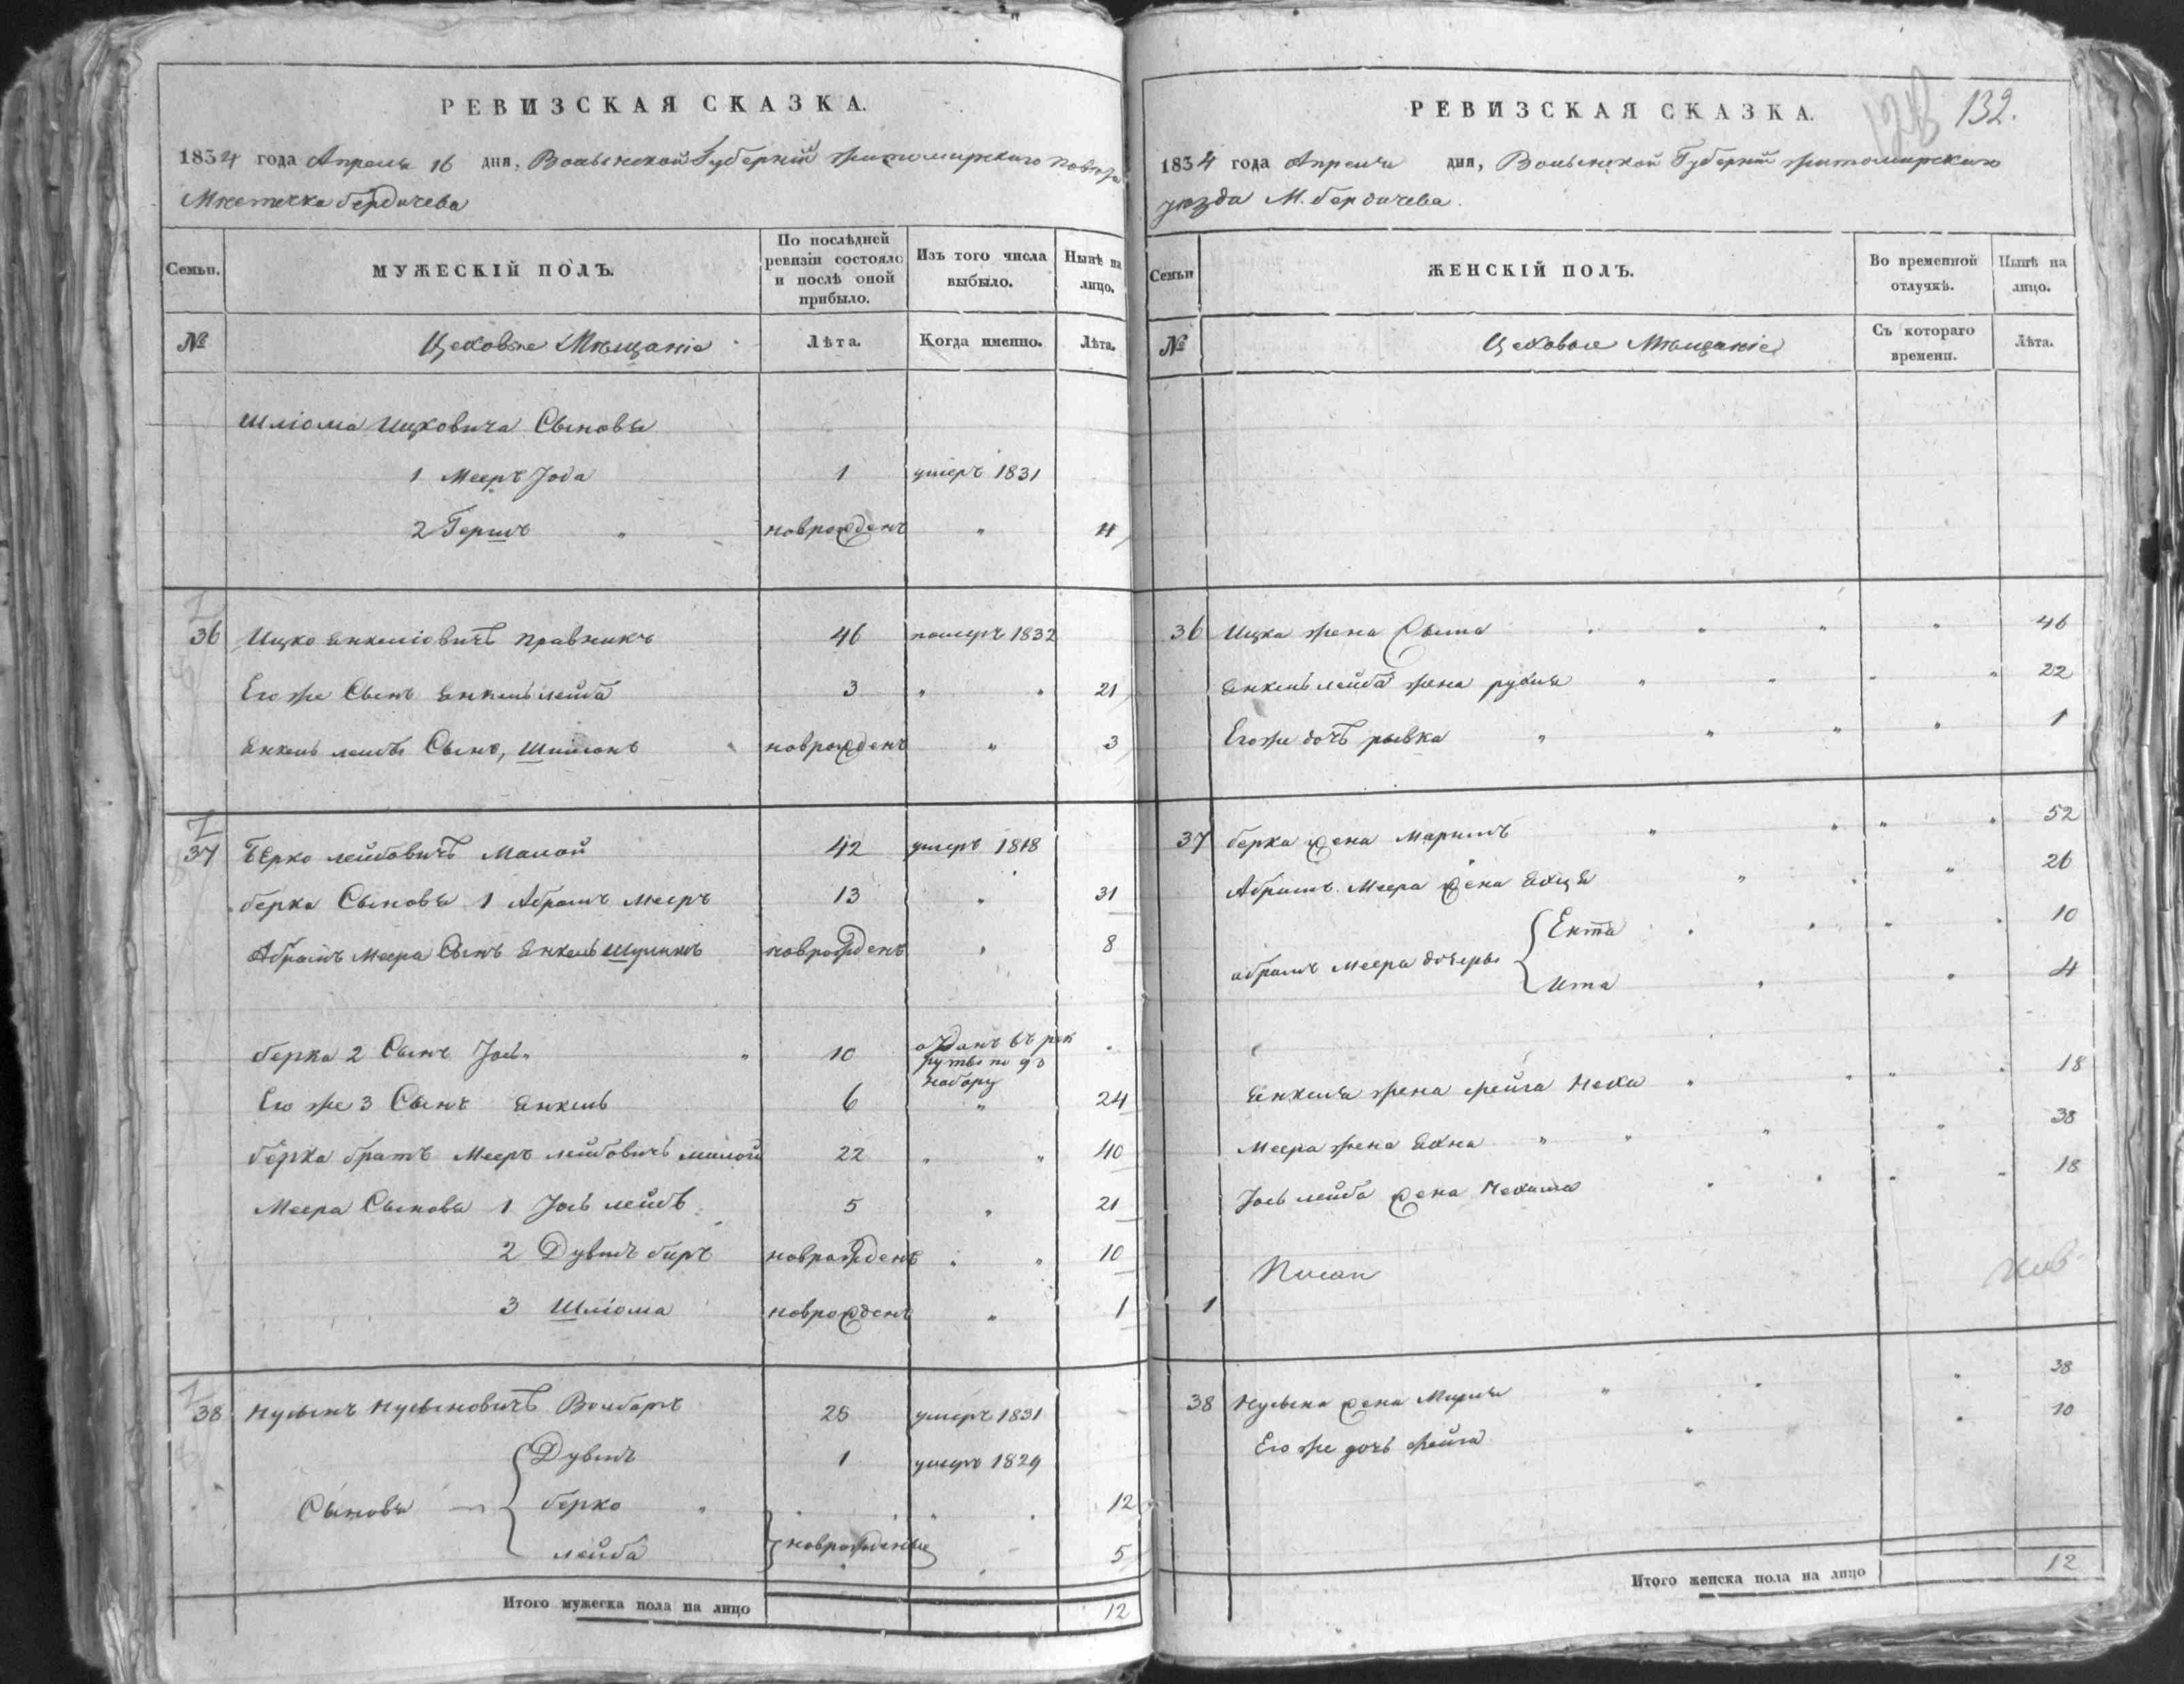 РЕВИЗСКАЯ СКАЗКА.
1834 года Апреля 16 дня, Волынской Губерніи Житомирскаго Повета
Местечка Бердичева
Семьи. МУЖЕСКІЙ ПОЛЪ. По послѣдней ревизіи состояло и послѣ оной прибыло. Изъ того числа выбыло. Нынѣ на лицо.
№ Цеховые Мѣщаніе Лѣта. Когда именно. Лѣта.
Шліома Ицковича Сыновья
1 Мееръ 1 умеръ 1831
2 Гершъ " новрожденъ " 4
36 Ицко Енкеліовичъ Правникъ 46 померъ 1832
Его же Сынъ Енкель лейба 3 " " 21
Енкель лейбы Сынъ, Шимонъ новрожденъ " 3
37 Берко лейбовичъ Малой 42 умеръ 1818
берка Сыновья 1 Абрамъ Мееръ 13 " 31
Абрамъ Меера Сынъ Енкель новрожденъ " 8
берка 2 Сынъ Јось " 10 отданъ въ рек
руты по
набору
Его же 3 Сынъ Енкель 6 " 24
берка братъ Мееръ лейбовичъ малой 22 " " 40
Меера Сыновья 1 Јось лейбъ 5 " 21
2 Дувидъ беръ новрожденъ " " 10
3 Шліома новрожденъ " 1
38 Нусынъ Нусыновичъ 25 умеръ 1831
Дувидъ 1 умеръ 1829
Сыновья берко " 12
лейба новрожденые 5
Итого мужеска пола на лицо 12
132.
РЕВИЗСКАЯ СКАЗКА.
1834 года Апреля дня, Волынской Губерніи Житомирскаго
уезда М. Бердичева.
Семьи ЖЕНСКІЙ ПОЛЪ. Во временной отлучкѣ. Нынѣ на лицо.
№ Цеховые Мѣщаніе Съ котораго времени. Лѣта.
36 Ицка жена Сыма " " " 46
Енкель лейба жена рухля " " " " 22
Его же дочь рывка " " " " 1
37 берка жена Маримъ " " " " 52
Абрамъ Меера жена " " " 26
абрамъ Меера дочеры Ента " " " " 10
Ита " " 4
Енкеля жена фейга Неха " " " " 18
Меера жена Хана " " " " 38
Јось лейба жена Нехама " " " " 18
1
38 Нусына жена " " " 38
Его же дочь фейга " " 10
Итого женска пола на лицо 12